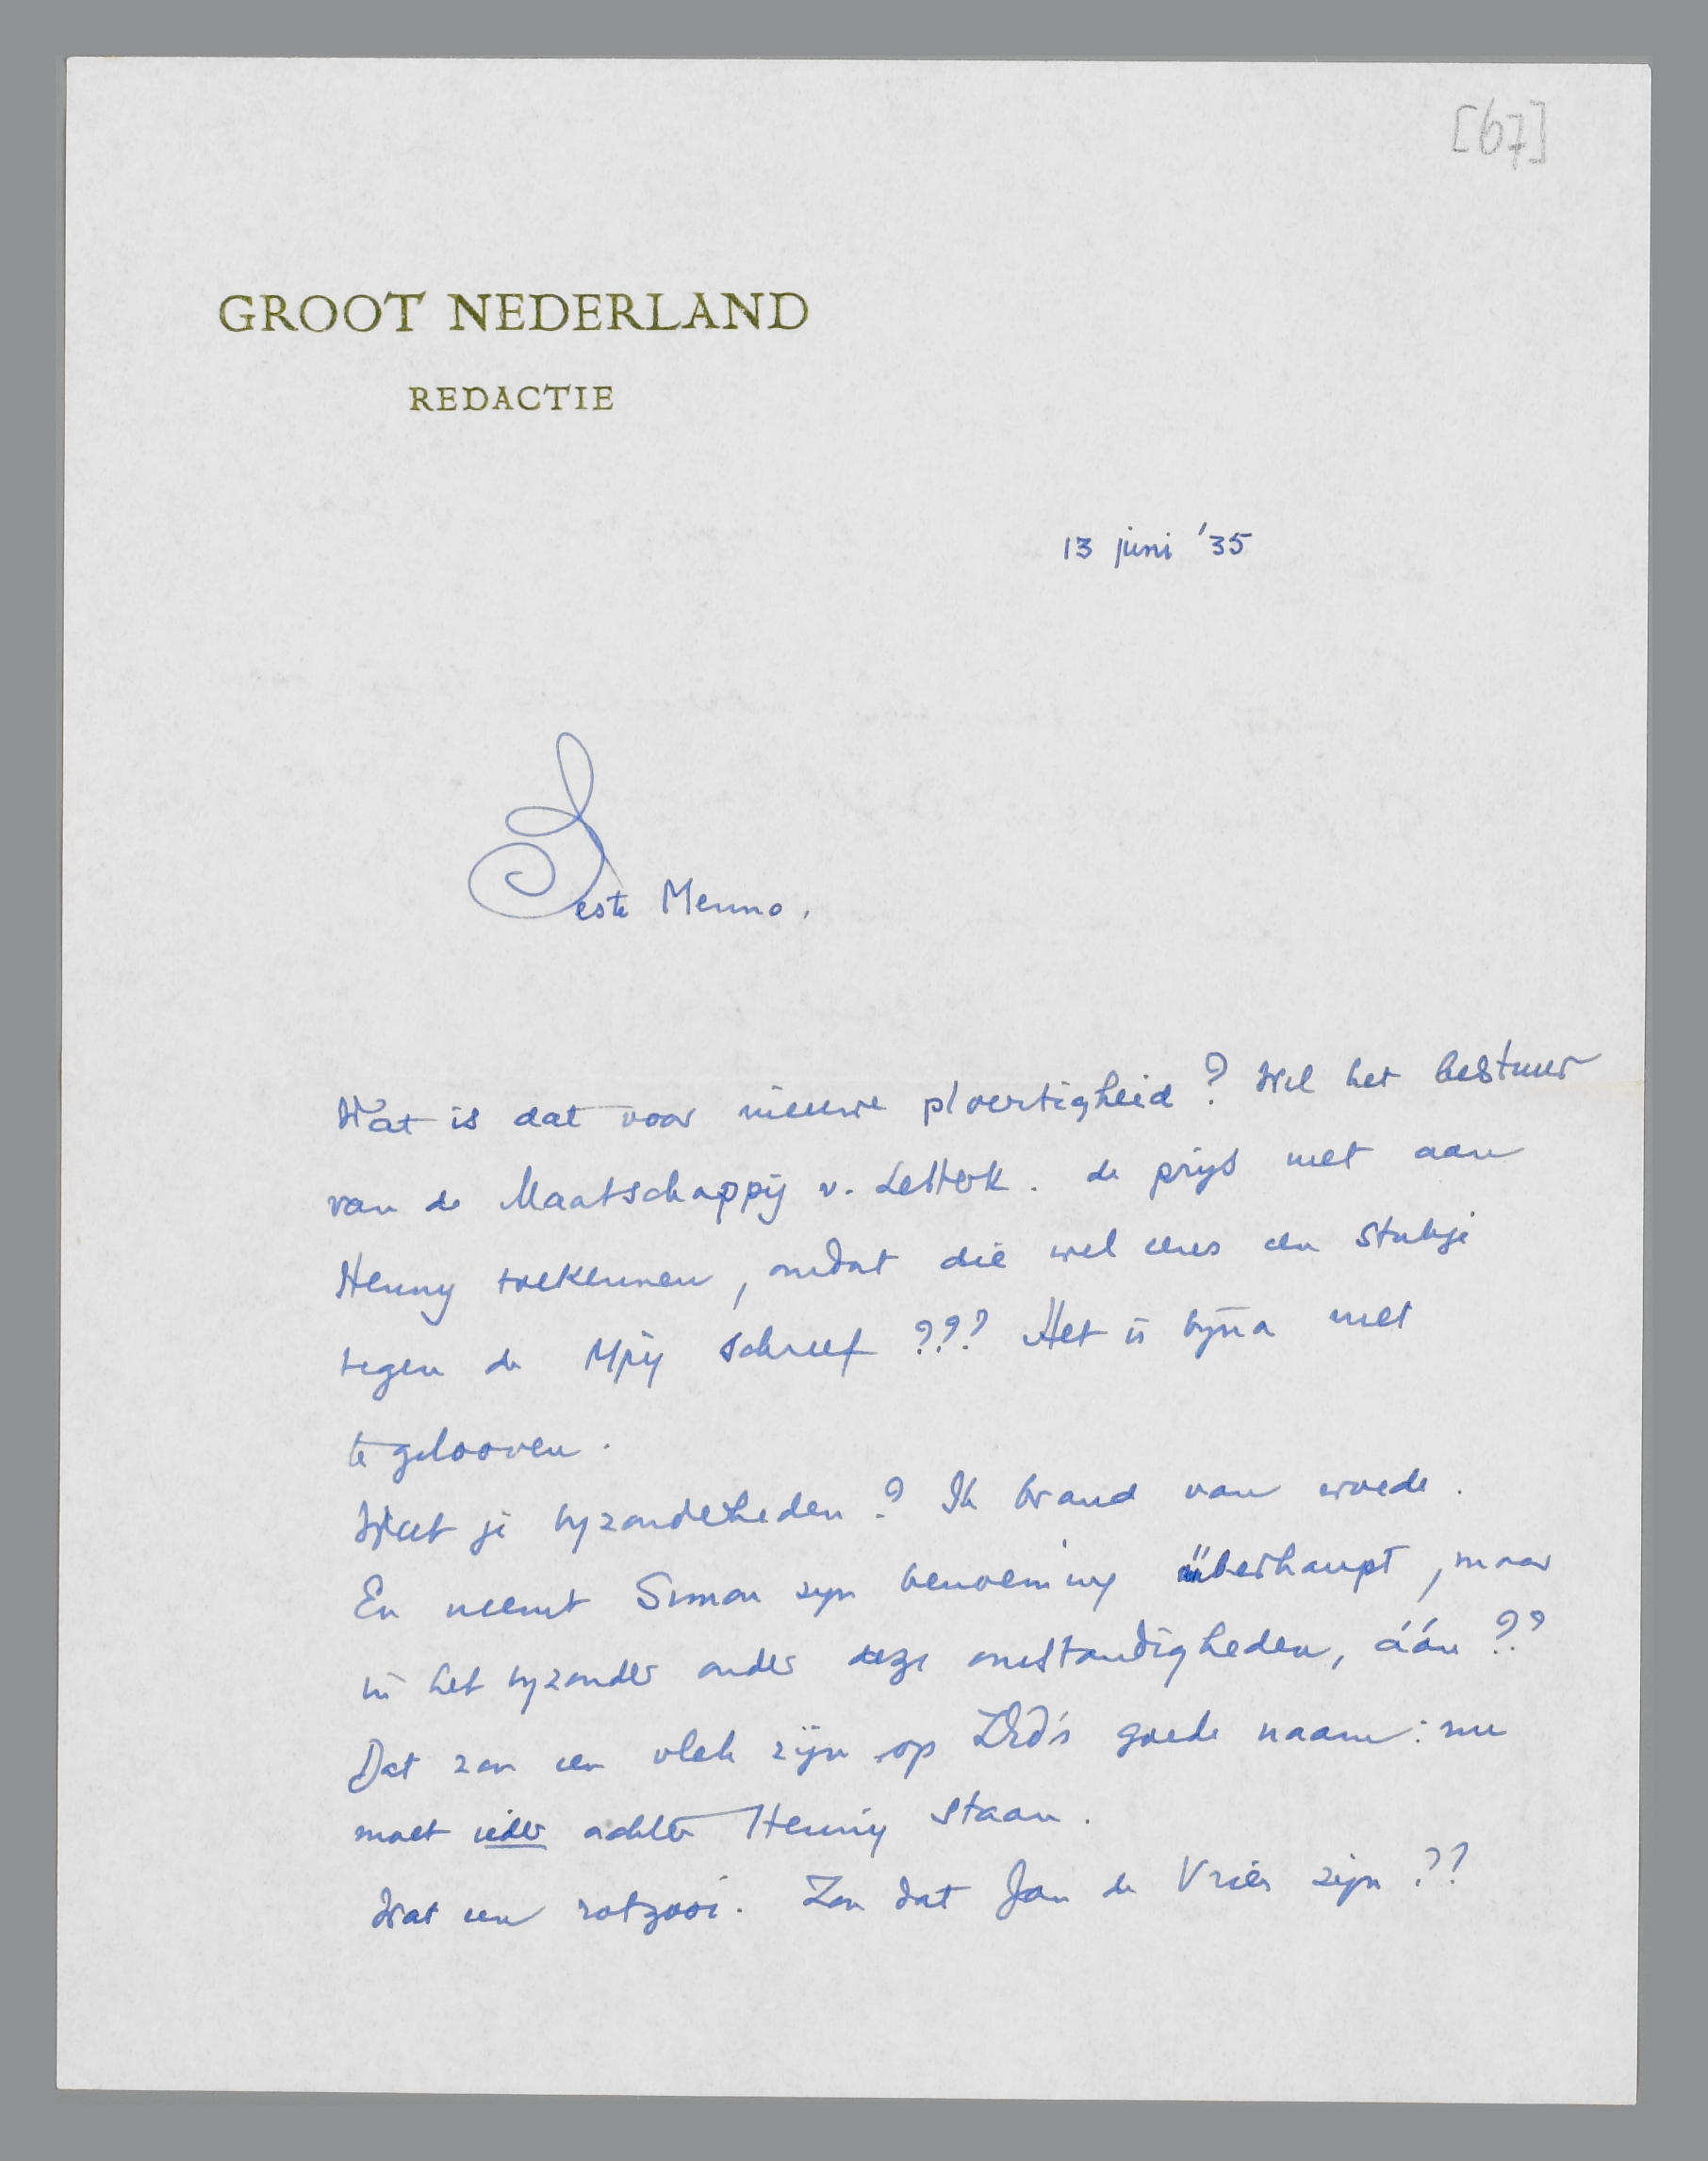 [67]
GROOT NEDERLAND
REDACTIE
13 juni '35
Beste Menno,
Wat is dat voor nieuwe ploertigheid? Wil het bestuur
van de Maatschappij v. Letterk. de prijs niet aan
Henny toekennen, omdat die wel eens een stukje
tegen de Mpij schreef??? Het is bijna niet
te gelooven.
Weet je byzonderheden? Ik brand van woede.
En neemt Simon zyn benoeming überhaupt, maar
in het byzonder onder deze omstandigheden, áán??
Dat zou een vlek zijn op goede naam: nu
moet ieder achter Henny staan.
Wat een rotzooi. Zou dat Jan de Vries zijn??